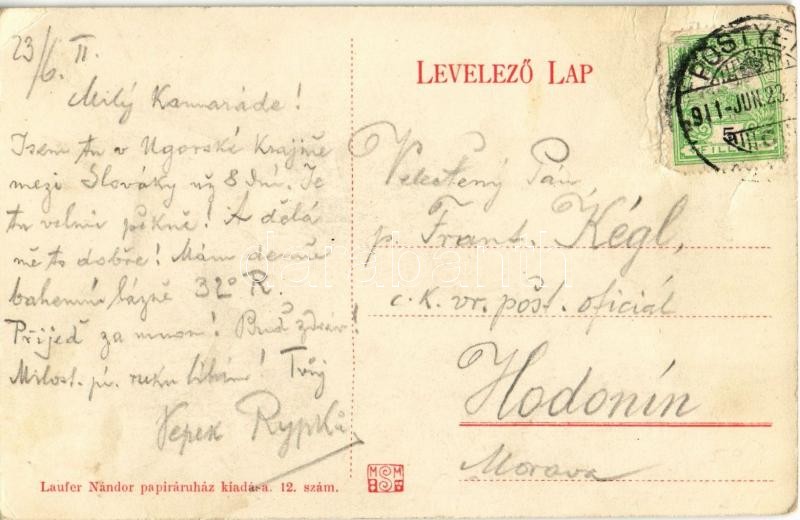 23/6. II.
Milý Kamaráde!
Jsem tu v Ugorské Krajině
mezi Slováky už 8 dní. Je
tu velmi pěkně! A dělá
mě to dobře! Mám denně
bahenní lázně 32° R.
Přijeď za mnou! Buď zdráv!
Milost. pí. ruku líbám! Tvůj
Pepek Rypka
LEVELEZŐ LAP
PÖSTYÉN
911-JUN.23.
5
Velectěný Pán
p. Frant. Kégl,
c. k. vr. pošt. oficiál
Hodonín
Morava
Laufer Nándor papiráruház kiadása. 12. szám.
MSM
darabanth